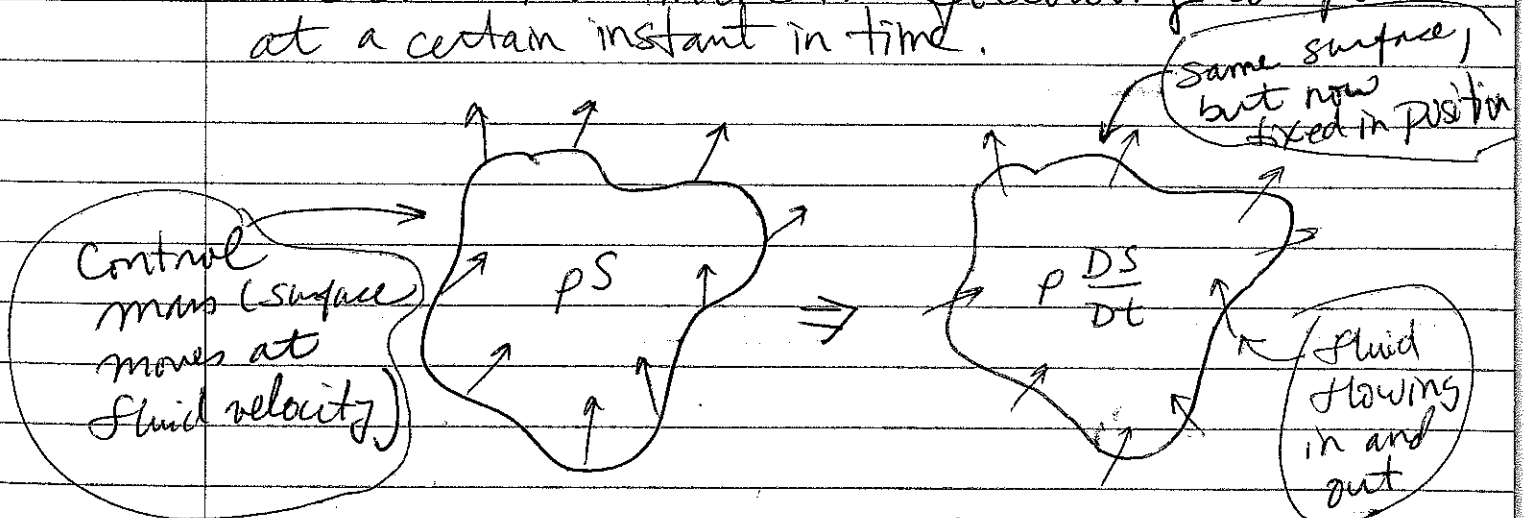 at a certain instant in time.
same surface,
but now
fixed in position
Control
mass (surface
moves at
fluid velocity)
ρS
⇒
ρ DS/Dt
fluid
flowing
in and
out